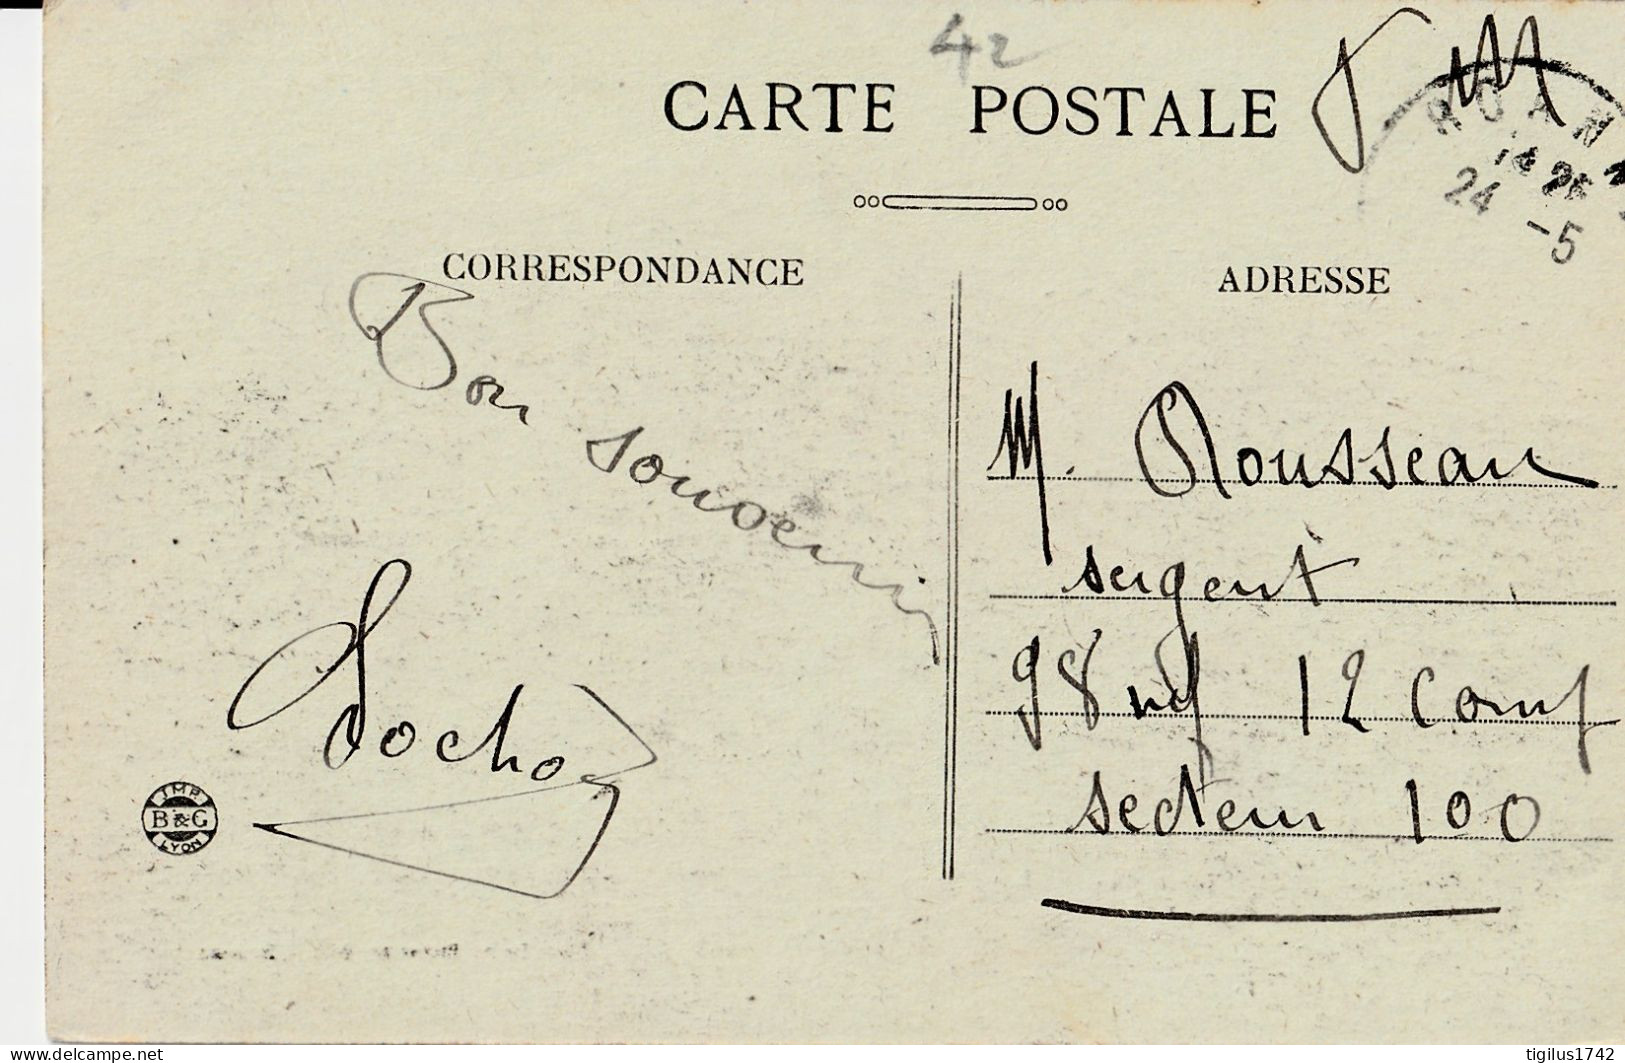 42
CARTE POSTALE
F M
ROANN
14 25
24 -5
CORRESPONDANCE
ADRESSE
Bon souvenir
M. Rousseau
sergent
98
12 Comp
secteur 100
IMP.
B&G
LYON
www.delcampe.net
tigilus1742